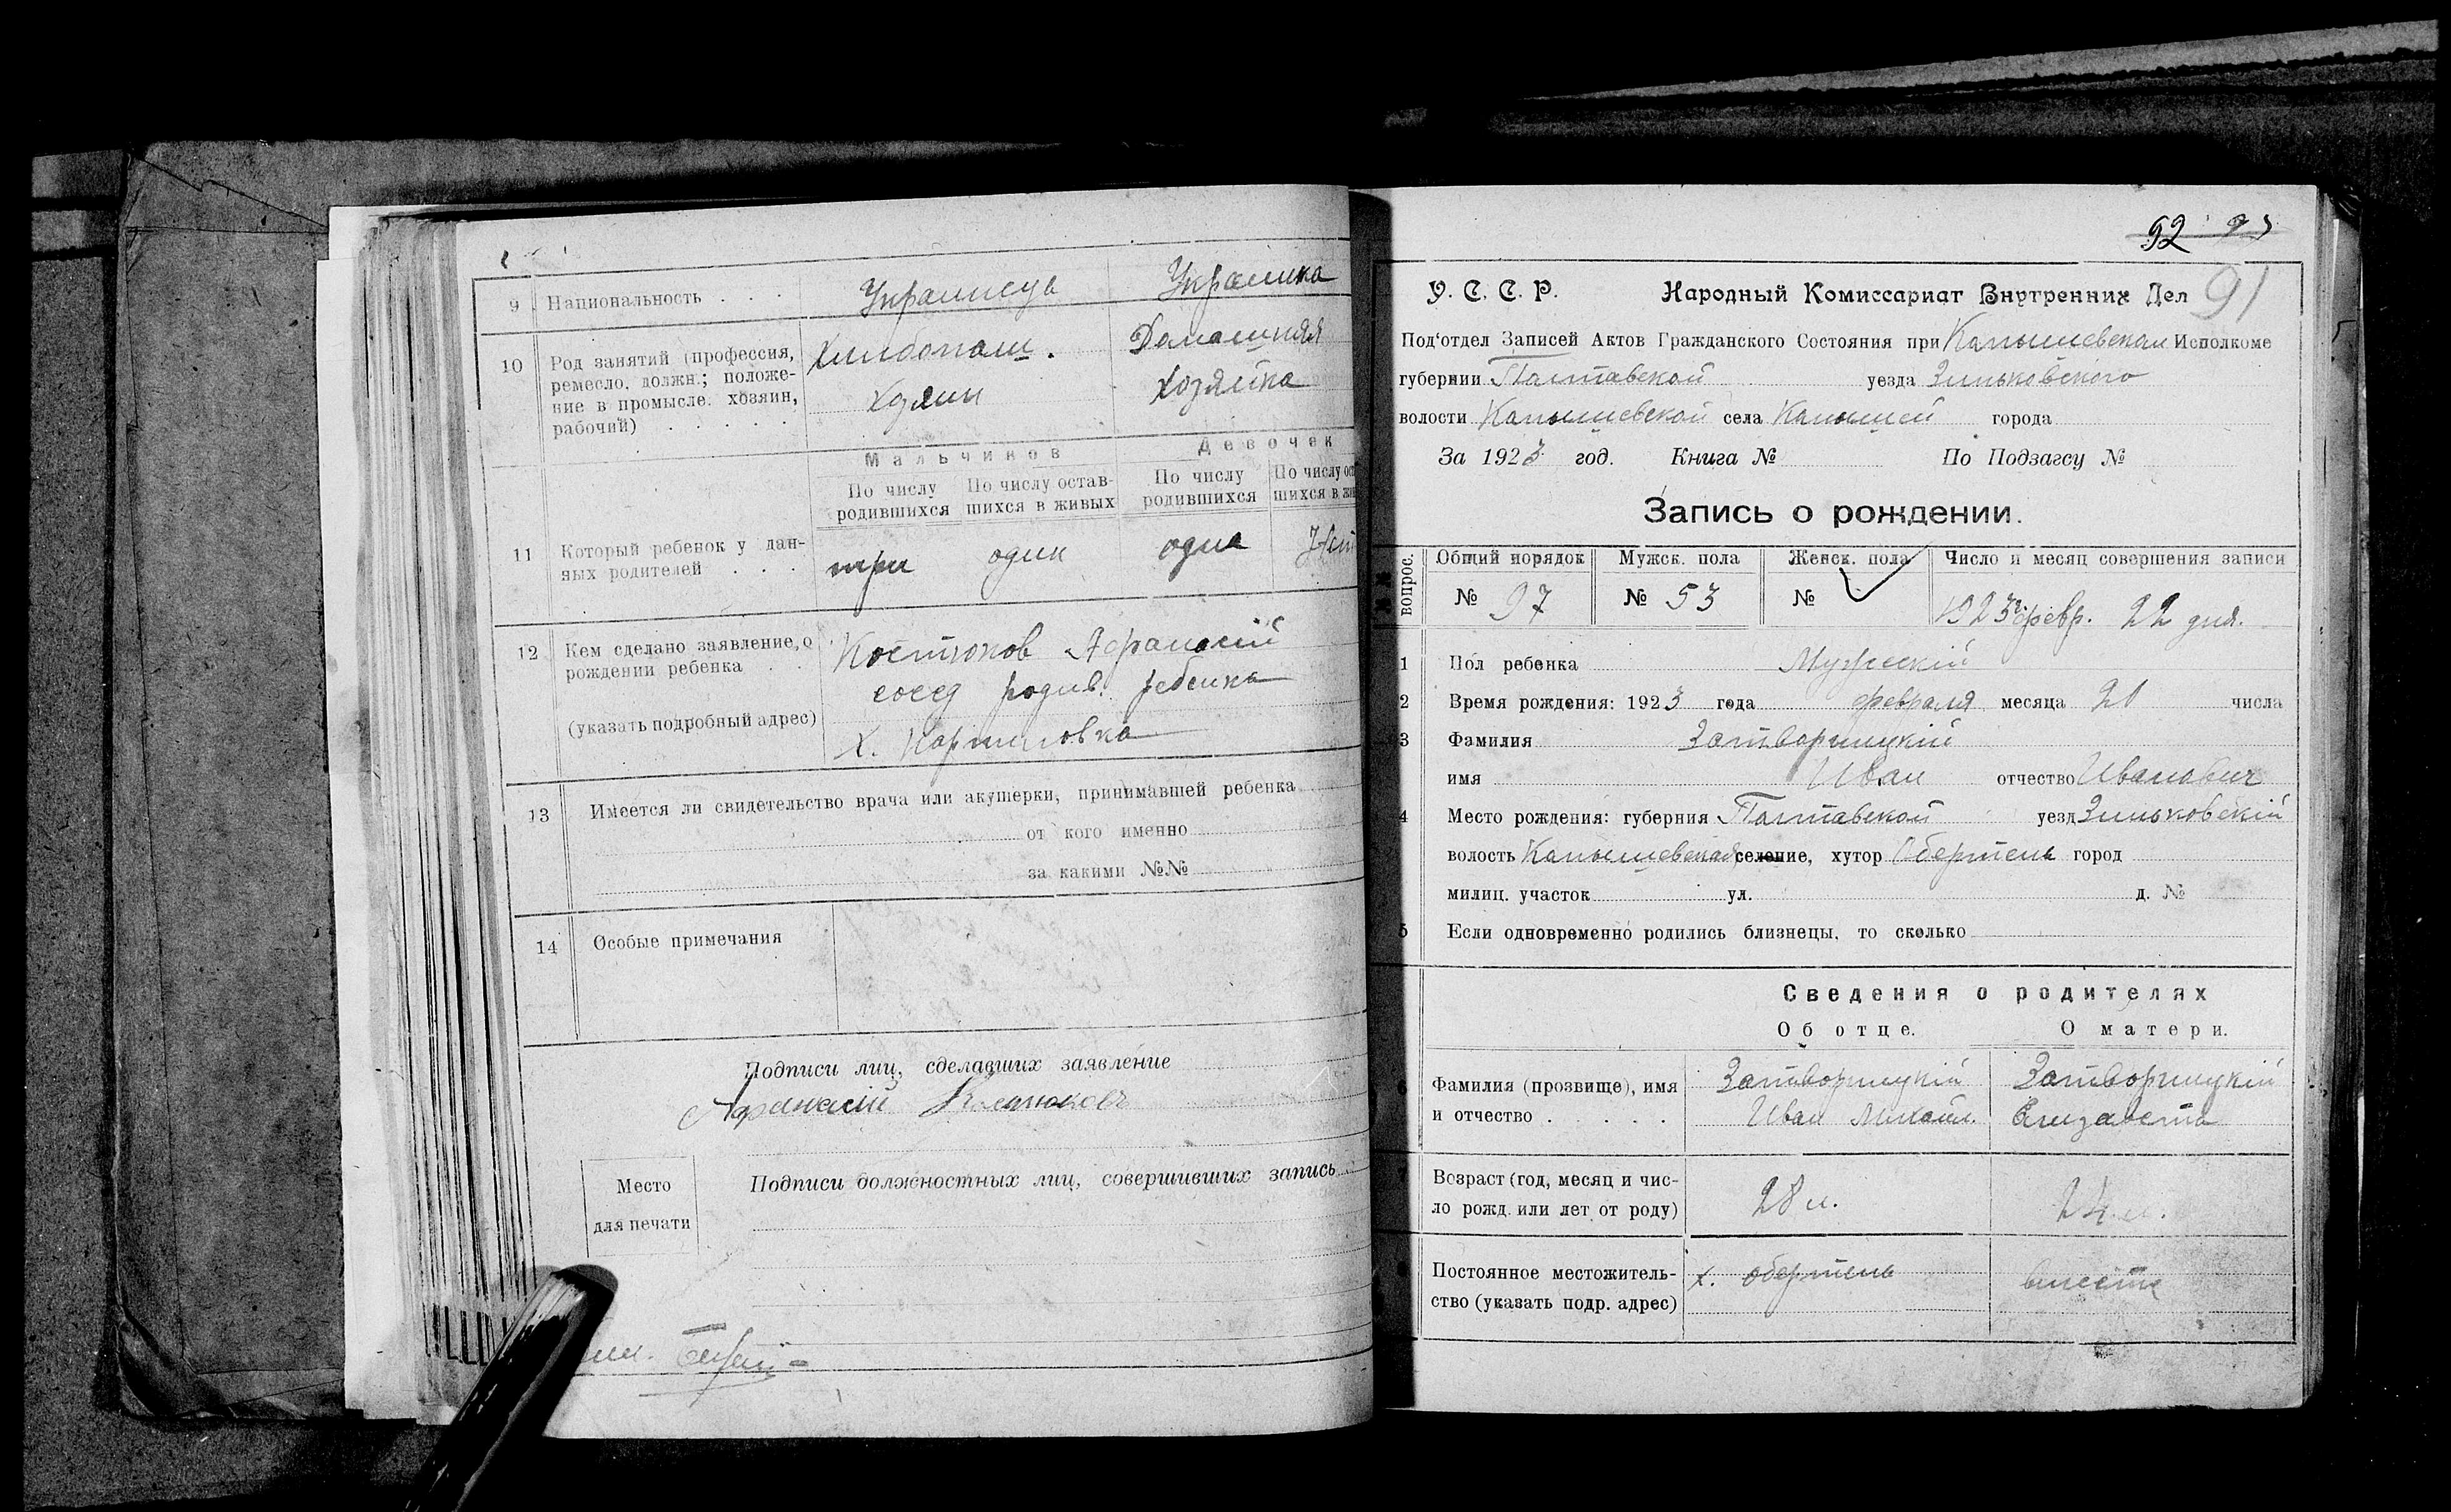 9 Национальность . . . Украинец Украинка
10 Род занятий (профессия, Хлебопаш. Домашняя
ремесло, должн.; положе-
ние в промысле. хозяин, хозяйка
рабочий) . . . . .
Мальчиков Девочек
По числу По числу остав- По числу По числу ост
родившихся шихся в живых родившихся шихся в жи
11 Который ребенок у дан- три один одна Нет
ных родителей . . .
12 Кем сделано заявление, о Костюков Афанасій
рождении ребенка . . сосед родив. ребенка
(указать подробный адрес)
х.
13 Имеется ли свидетельство врача или акушерки, принимавшей ребенка
от кого именно
за какими №№
14 Особые примечания
Подписи лиц, сделавших заявление
Афанасій Костюковъ
Место
для печати
Подписи должностных лиц, совершивших запись
92
91
У. С. С. Р. Народный Комиссариат Внутренних Дел
Под'отдел Записей Актов Гражданского Состояния при Исполкоме
губернии Полтавской уезда Зиньковского
волости села города
За 1923 год. Книга № По Подзагсу №
Запись о рождении.
вопрос. Общий порядок Мужск. пола Женск. пола Число и месяц совершения записи
№ 97 № 53 № 1923 г. февр. 22 дня.
1 Пол ребенка Мужескій
2 Время рождения: 1923 года февраля месяца 21 числа
3 Фамилия Затворницкій
имя Иван отчество Иванович
4 Место рождения: губерния Полтавской уезд Зиньковскій
волость селение, хутор Обертень город
милиц. участок ул. д. №
5 Если одновременно родились близнецы, то сколько
Сведения о родителях
Об отце. О матери.
6 Фамилия (прозвище), имя Затворницкій Затворницкій
и отчество . . . . . Иван Михайл. Елизавета
7 Возраст (год, месяц и чис- 28 л. 24 л.
ло рожд. или лет от роду)
Постоянное местожитель- х. Обертень вместе
ство (указать подр. адрес)